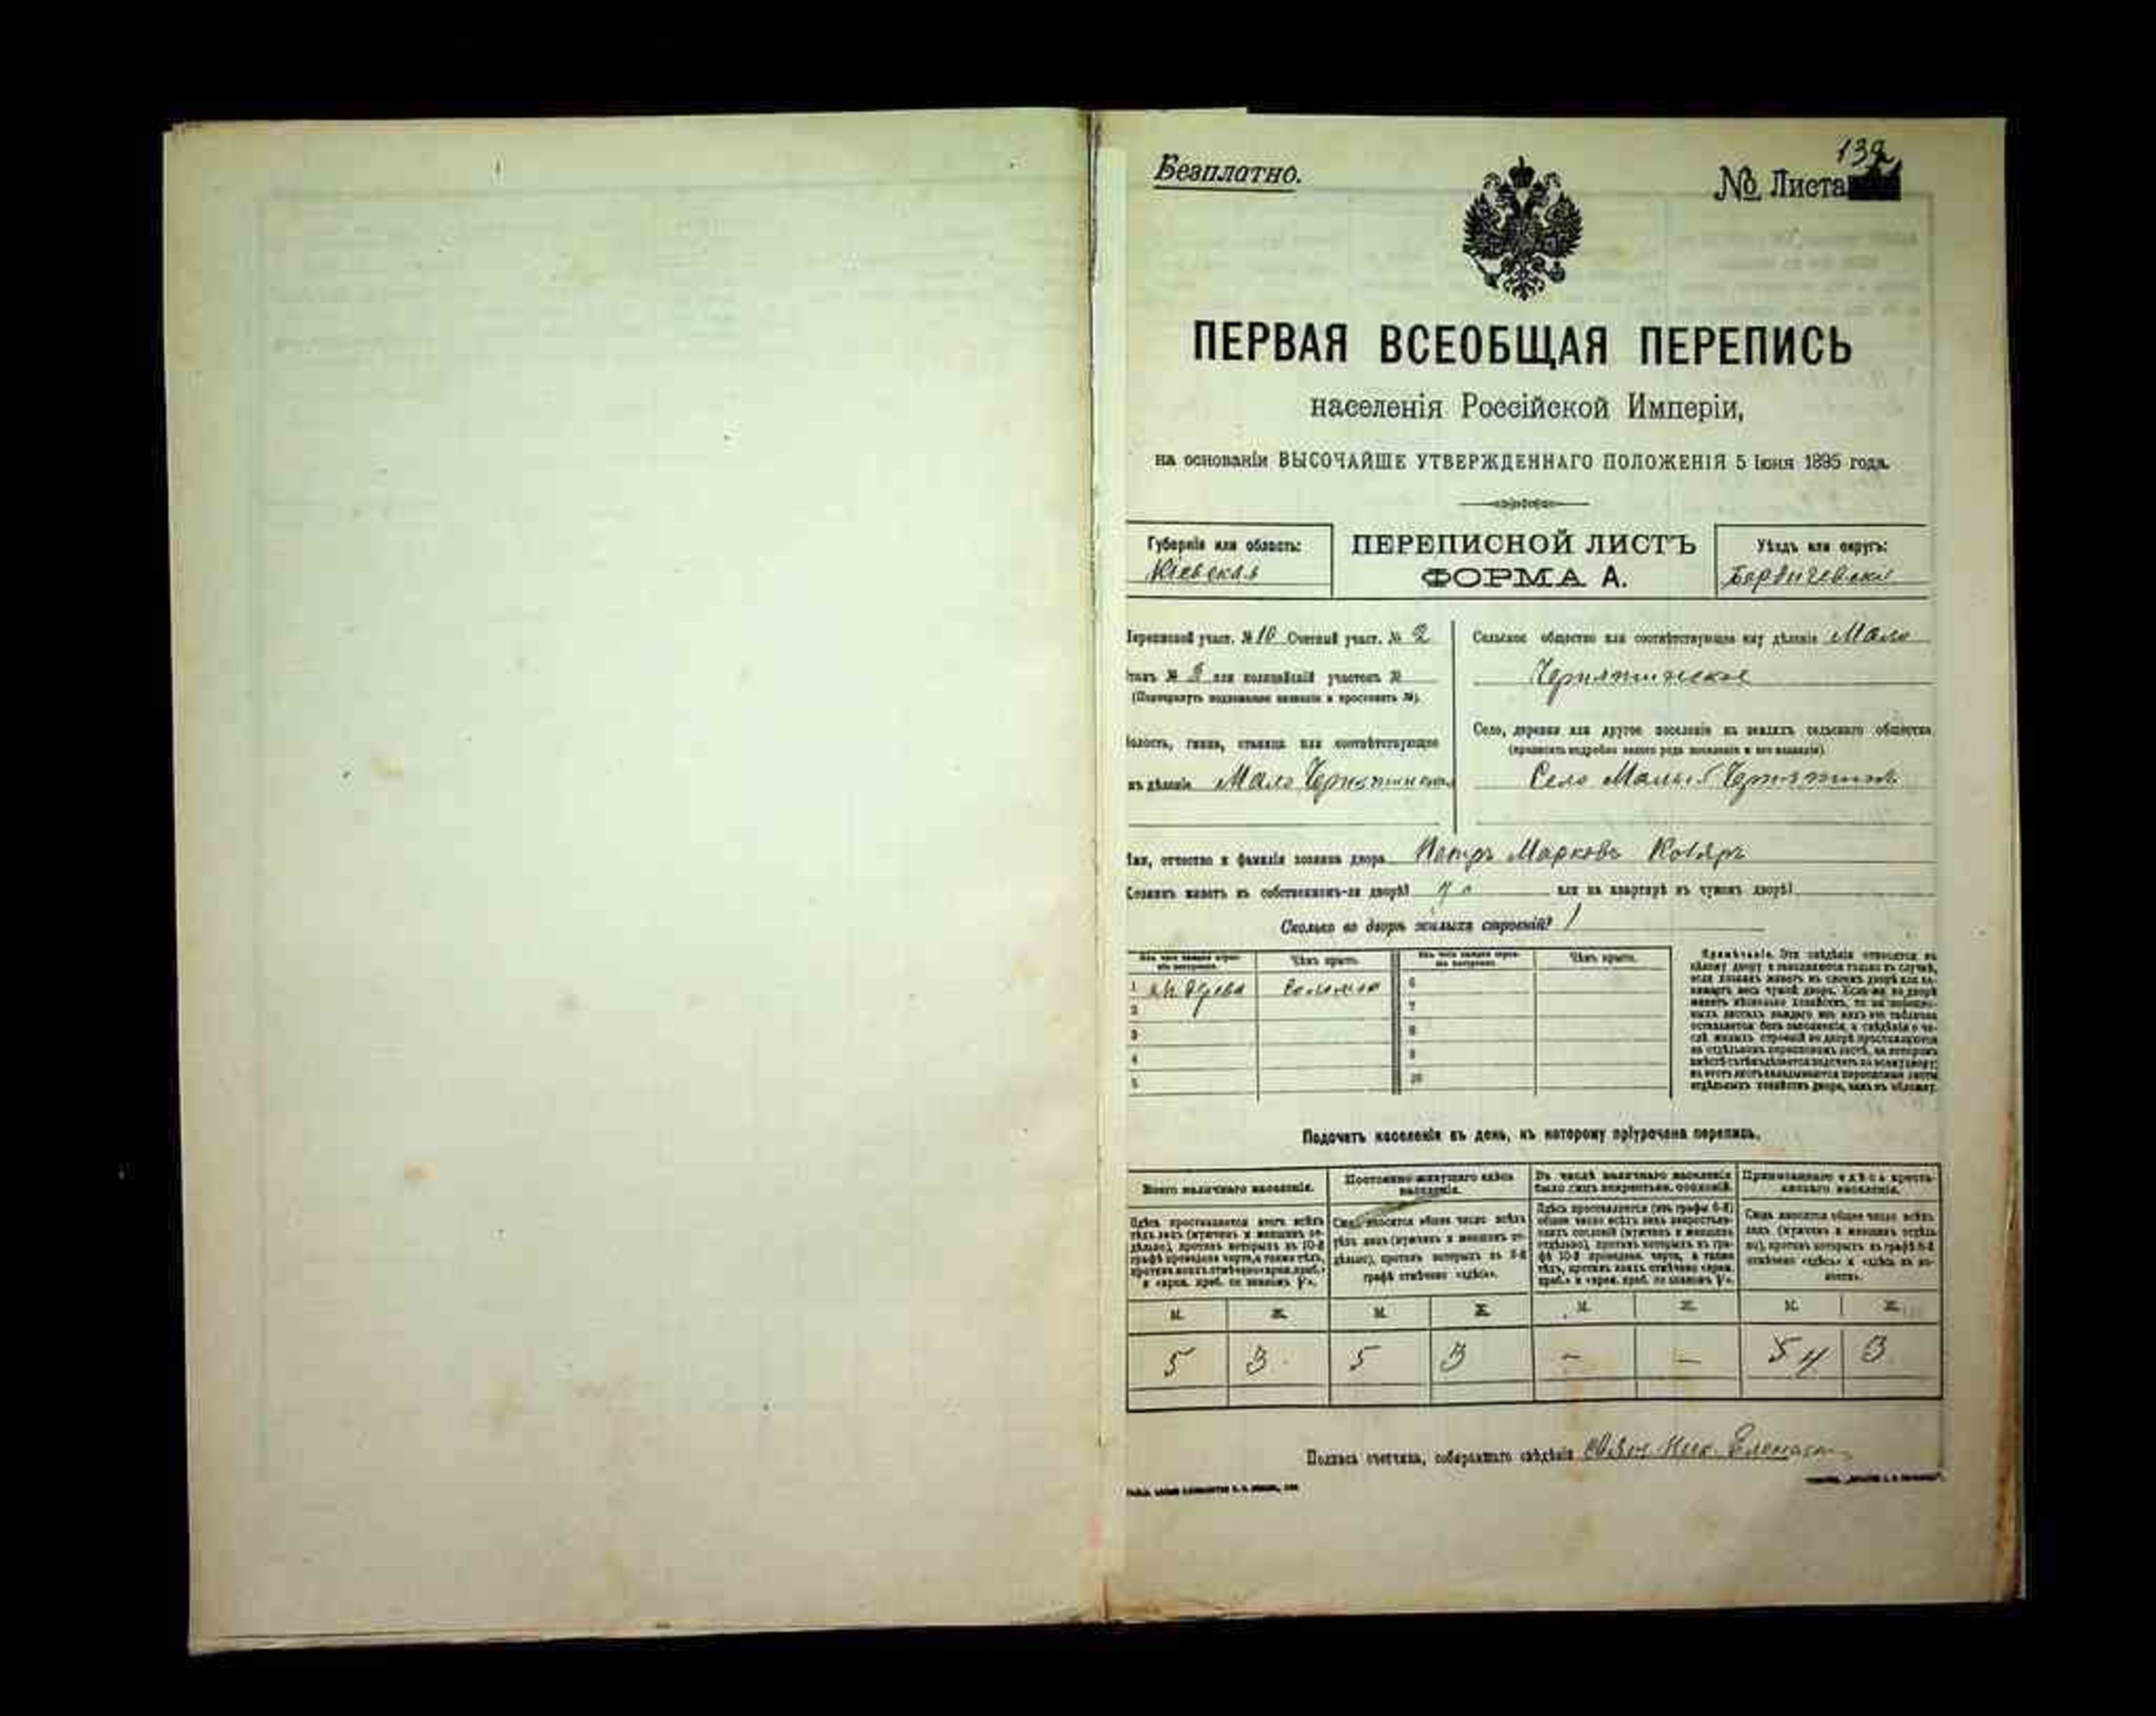 Безплатно.
№ Листа
139
ПЕРВАЯ ВСЕОБЩАЯ ПЕРЕПИСЬ
населенія Россійской Имперіи,
на основаніи ВЫСОЧАЙШЕ УТВЕРЖДЕННАГО ПОЛОЖЕНІЯ 5 Іюня 1895 года.
Губернія или область:
Кіевская
ПЕРЕПИСНОЙ ЛИСТЪ
ФОРМА А.
Уѣздъ или округъ:
Бердичевскій
Переписной участ. № 10 Счетный участ. № 2
Станъ № 3 или полицейскій участокъ №
(Подчеркнуть подлежащее названіе и проставить №).
Волость, гмина, станица или соотвѣтствующее
имъ дѣленіе Мало Чернятинская
Сельское общество или соотвѣтствующее ему дѣленіе Мало
Чернятинское
Село, деревня или другое поселеніе на земляхъ сельскаго общества
(прописать подробно какого рода поселеніе и его названіе)
Село Малый Чернятинъ
Имя, отчество и фамилія хозяина двора Петръ Марковъ Коляръ
Хозяинъ живетъ въ собственномъ-ли дворѣ? или на квартирѣ въ чужомъ дворѣ?
Сколько во дворѣ жилыхъ строеній? 1
Изъ чего каждое строеніе построено.
Чѣмъ крыто.
Изъ чего каждое строеніе построено.
Чѣмъ крыто.
1 изъ дерева соломою 6
2 7
3 8
4 9
5 10
Примѣчаніе. Эти свѣдѣнія относятся къ
цѣлому двору и заполняются только въ случаѣ,
если хозяинъ живетъ въ своемъ дворѣ или занимаетъ весь чужой дворъ. Если-же во дворѣ
имѣетъ нѣсколько хозяйствъ, то на
листахъ каждаго изъ нихъ эта табличка
оставляется безъ заполненія, а свѣдѣнія о числѣ жилыхъ строеній во дворѣ проставляются
на отдѣльномъ переписномъ листѣ, на которомъ
вмѣстѣ съ тѣмъ дѣлается подсчетъ по всему двору;
въ этотъ листъ вкладываются переписные листы
отдѣльныхъ хозяйствъ двора, какъ въ обложку.
Подсчетъ населенія въ день, къ которому пріурочена перепись.
Всего наличнаго населенія.
Постоянно живущаго здѣсь населенія.
Въ числѣ наличнаго населенія было лицъ некрестьян. сословій.
Приписаннаго здѣсь крестьянскаго населенія.
Здѣсь проставляется итогъ всѣхъ
тѣхъ лицъ (мужчинъ и женщинъ отдѣльно), противъ которыхъ въ 10-й
графѣ проведена черта, а также тѣхъ,
противъ коихъ отмѣчено «врем. преб.»
и «врем. преб. со знакомъ V».
Сюда вносится общее число всѣхъ
тѣхъ лицъ (мужчинъ и женщинъ отдѣльно), противъ которыхъ въ 9-й
графѣ отмѣчено «здѣсь».
Здѣсь проставляется (изъ графы 6-й)
общее число всѣхъ лицъ некрестьянскихъ сословій (мужчинъ и женщинъ
отдѣльно), противъ которыхъ въ графѣ 10-й проведена черта, а также
тѣхъ, противъ коихъ отмѣчено «врем.
преб.» и «врем. преб. со знакомъ V».
Сюда вносится общее число всѣхъ
лицъ (мужчинъ и женщинъ отдѣльно), противъ которыхъ въ графѣ 8-й
отмѣчено «здѣсь» и «здѣсь въ волости».
М. Ж. М. Ж. М. Ж. М. Ж.
5 3 5 3 – – 5 4 3
Подпись счетчика, собиравшаго свѣдѣнія